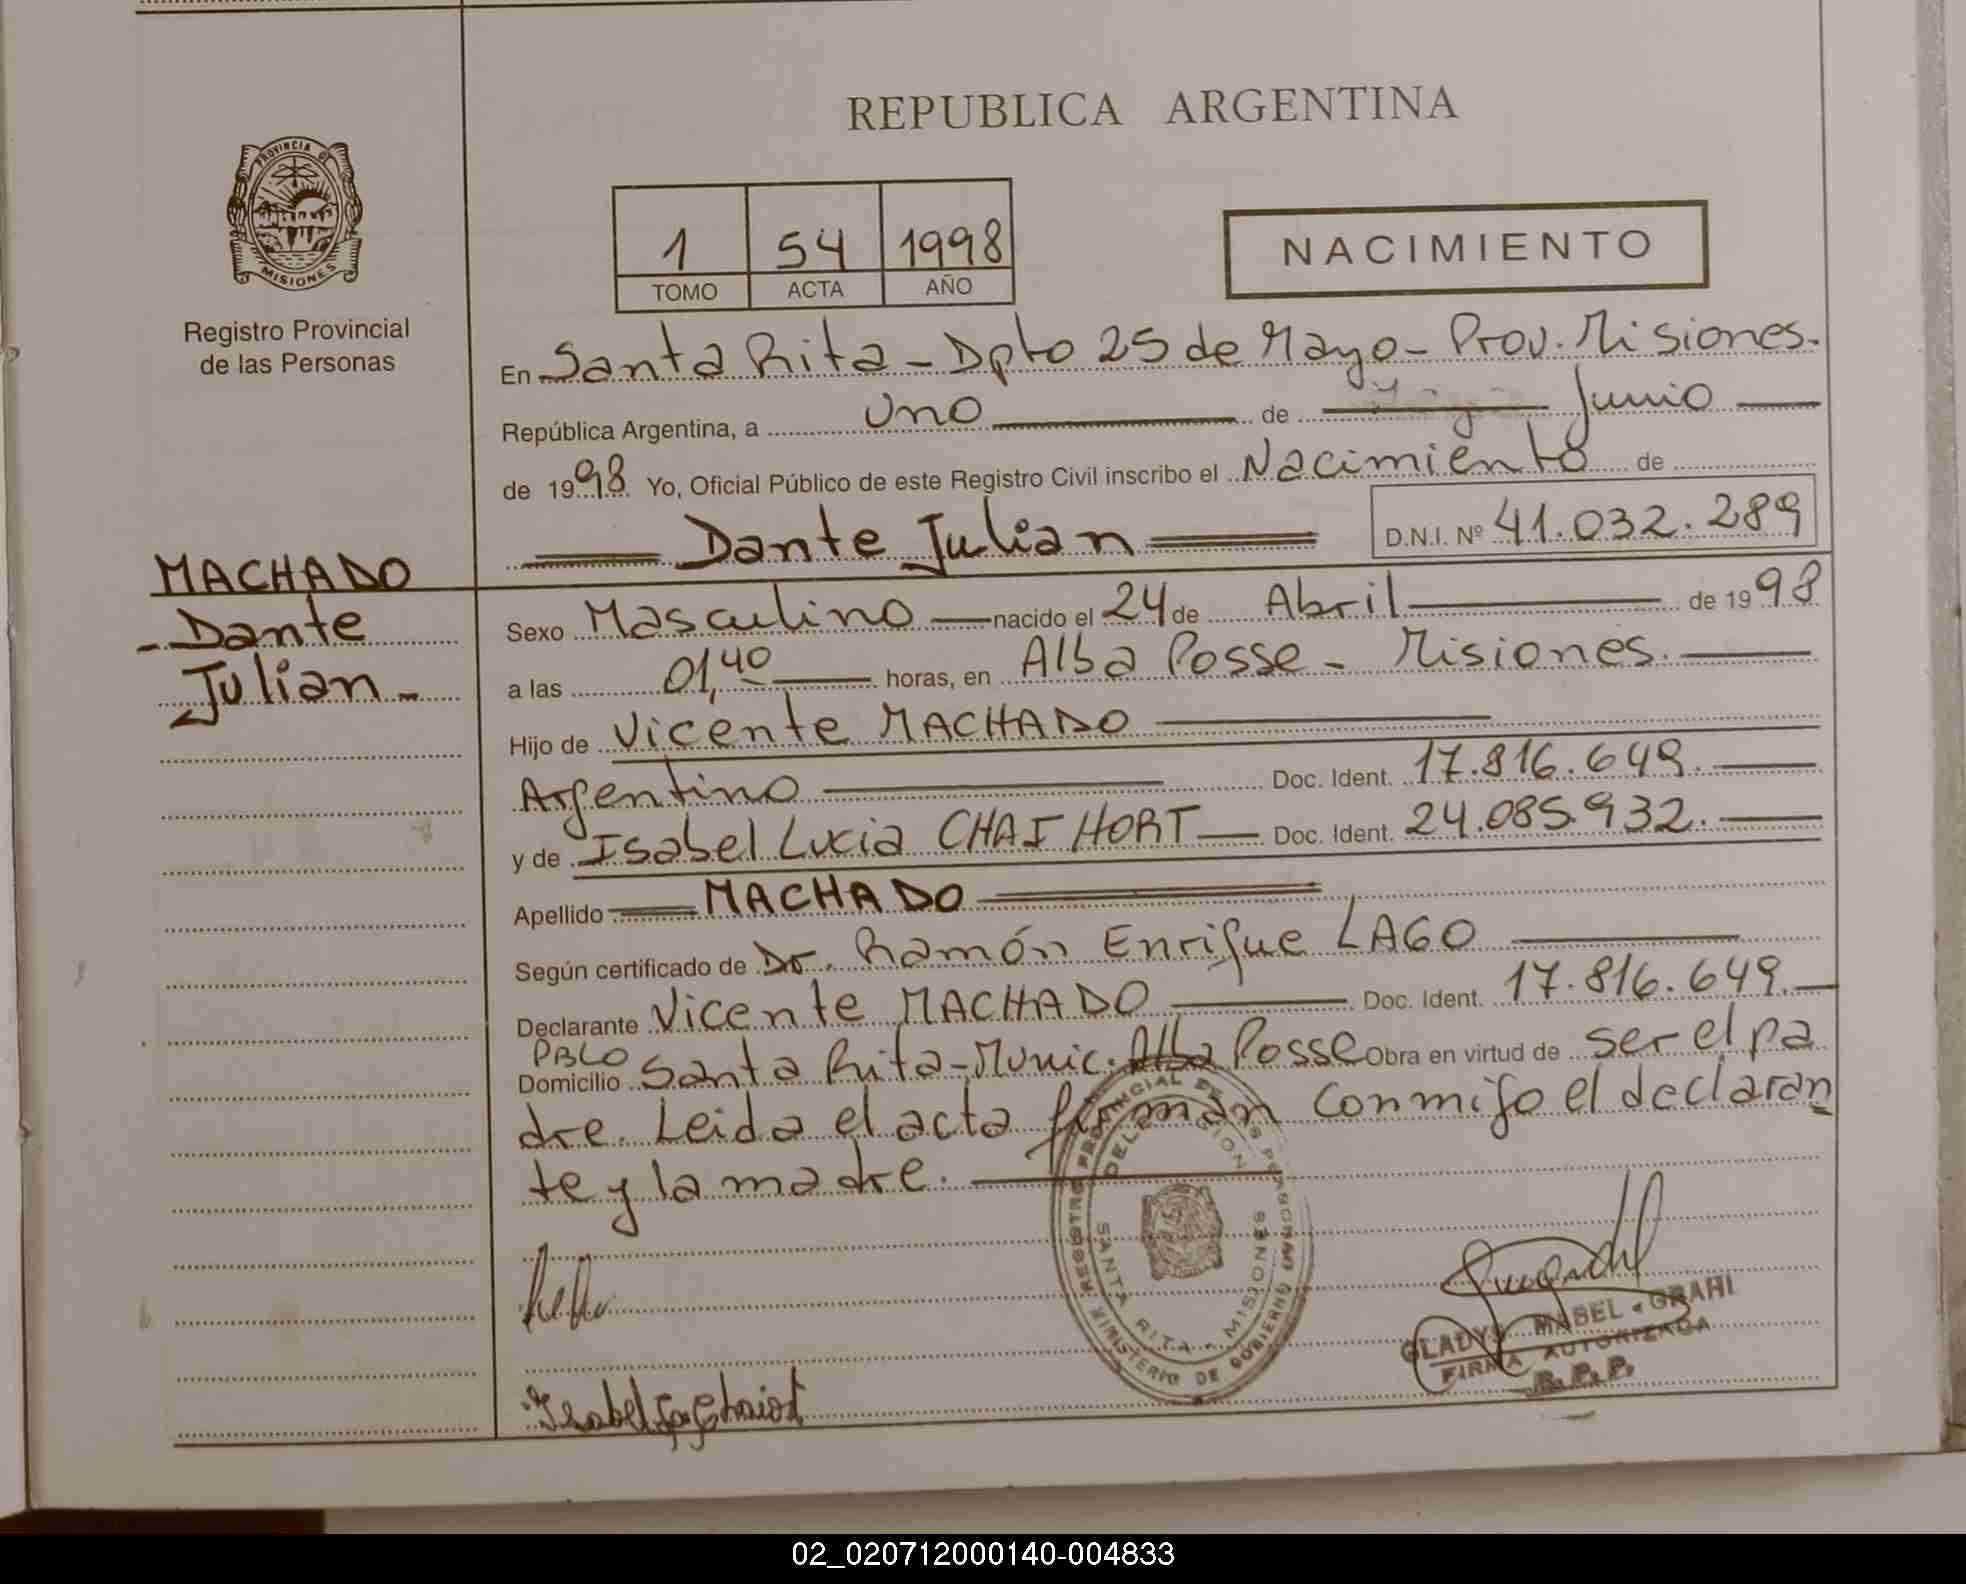 REPUBLICA ARGENTINA
PROVINCIA DE
MISIONES
Registro Provincial
de las Personas
1 54 1998
TOMO ACTA AÑO
NACIMIENTO
En Santa Rita - Dpto 25 de Mayo - Prov. Misiones.
República Argentina, a uno de Junio
de 1998 Yo, Oficial Público de este Registro Civil inscribo el Nacimiento de
Dante Julian D.N.I. Nº 41.032.289
MACHADO
- Dante
Julian -
Sexo Masculino nacido el 24 de Abril de 1998
a las 01,40 horas, en Alba Posse - Misiones.
Hijo de Vicente MACHADO
Argentino Doc. Ident. 17.816.649.
y de Isabel Lucia CHAIHORT Doc. Ident. 24.085.932.
Apellido MACHADO
Según certificado de Dr. Ramón Enrique LAGO
Declarante Vicente MACHADO Doc. Ident. 17.816.649.
Domicilio PBLO Santa Rita - Munic. Alba Posse Obra en virtud de ser el pa
dre. Leida el acta firman conmigo el declaran
te y la madre.
REGISTRO PROVINCIAL DE LAS PERSONAS
MINISTERIO DE GOBIERNO
DELEGACION
SANTA RITA - MISIONES
GLADYS MABEL GRAHL
FIRMA AUTORIZADA
R.P.P.
Isabel
02_020712000140-004833